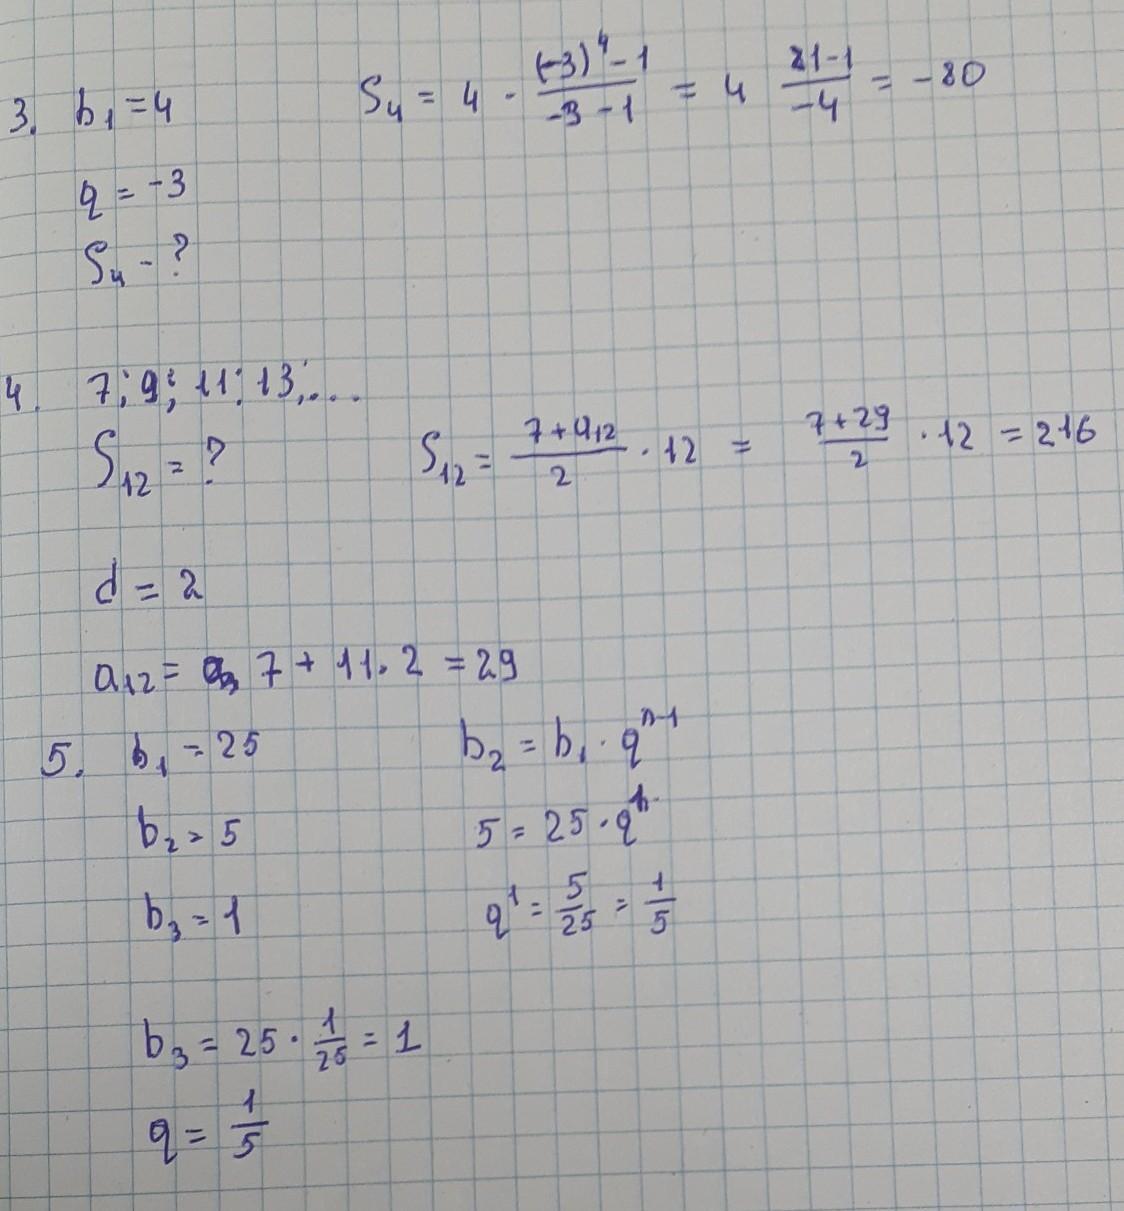 3. b₁ = 4 S₄ = 4 · \frac{(-3)^4 - 1}{-3 - 1} = 4 \frac{81-1}{-4} = -80
q = -3
S₄ - ?
4. 7; 9; 11; 13; ...
S₁₂ = ? S₁₂ = \frac{7+a_{12}}{2} · 12 = \frac{7+29}{2} · 12 = 216
d = 2
a₁₂ = 7 + 11 · 2 = 29
5. b₁ = 25 b₂ = b₁ · q^{n-1}
b₂ = 5 5 = 25 · q^1
b₃ = 1 q^1 = \frac{5}{25} = \frac{1}{5}
b₃ = 25 · \frac{1}{25} = 1
q = \frac{1}{5}